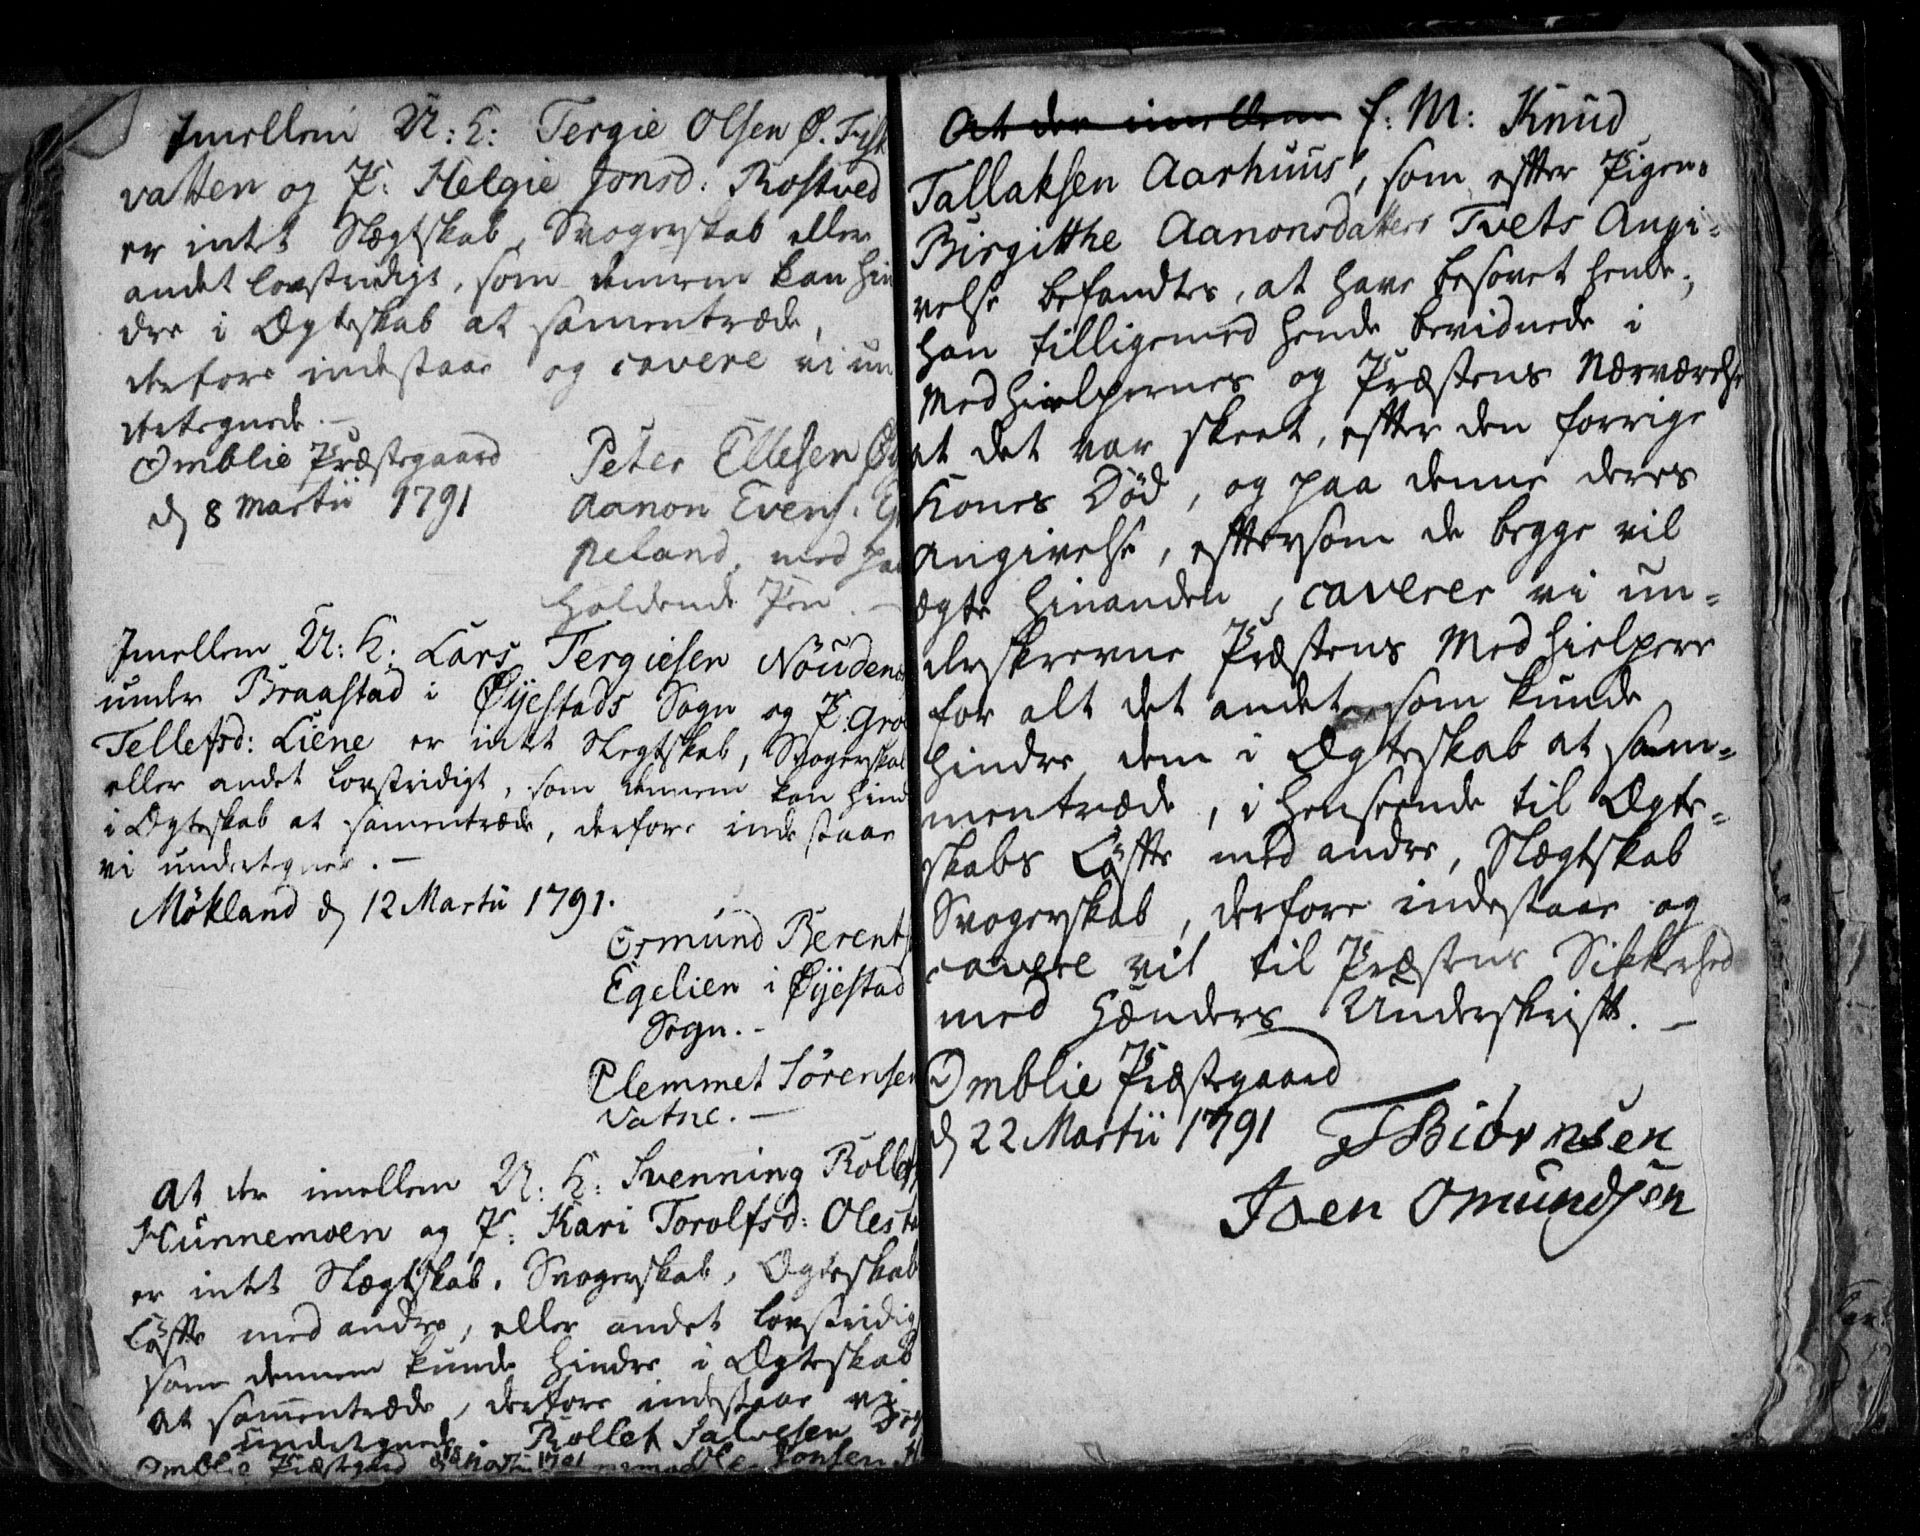 Imellem U: K: Tergie Olsen Ø. Fisk
vatten og P: Helgie Jonsd: Rostved
er intet Slægtskab, Svogerskab eller
andet lovstridigt, som dennem kan hin
dre i Ægteskab at samentræde,
derfore indestaar og cavere vi un
dertegnede. –
Omblie Præstegaard
d 8 Martii 1791
Peter Ellesen
Aanon Evens.
peland, med paa
holdende Pen. –
Imellem U: K: Lars Tergiesen Nöuden
under Braastad i Øÿestads Sogn og P. Gro
Tellefsd: Liene er intet Slegtskab, Svogerskab
eller andet lovstridigt, som dennem kan hind
i Ægteskab at samentræde, derfore indestaae
vi undertegner. –
Mökland d 12 Martii 1791.
Ormund Berents
Egelien i Øÿestad
Sogn. –
Clemmet Sörensen
Vatne. –
At der imellem U: K: Svenning Rollefs
Hunnemoen og P: Kari Torolfsd: Oleste
er intet Slægtskab, Svogerskab, Ægteskabs
Løfte med andre, eller andet lovstridig
som dennem kunde hindre i Ægteskab
at samentræde, derfore indestaae vi
undertegnede. Rollef Salvesen
Omblie Præstegaard Martii 1791 Ole Jonsen
At der imellem E: M: Knud
Tallaksen Aarhuus, som efter Pigen:
Birgitthe Aanonsdatters Tvets Angi:
velse befandtes, at have besovet hende;
han tilligemed hende bevidnede i
Medhielpernes og Præstens Nærværelse
at det var skeet, efter den forrige
Kones Död, og paa denne deres
Angivelse, eftersom de begge vil
ægte hinanden, caverer vi un=
derskrevne Præstens Medhielpere
for alt det andet som kunde
hindre dem i Ægteskab at sam=
mentræde, i henseende til Ægte=
skabs Löfte med andre, Slægtskab
Svogerskab, derfore indestaar og
cavere vil til Præstens Sikkerhed
med Hænders Underskrift. –
Omblie Præstegaard
d 22 Martii 1791
T Biörnsen
Joen Omundsen